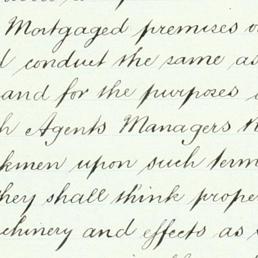 Mortgaged premises
conduct the same as
and for the purposes
Agents Managers
upon such
they shall think proper
and effects as